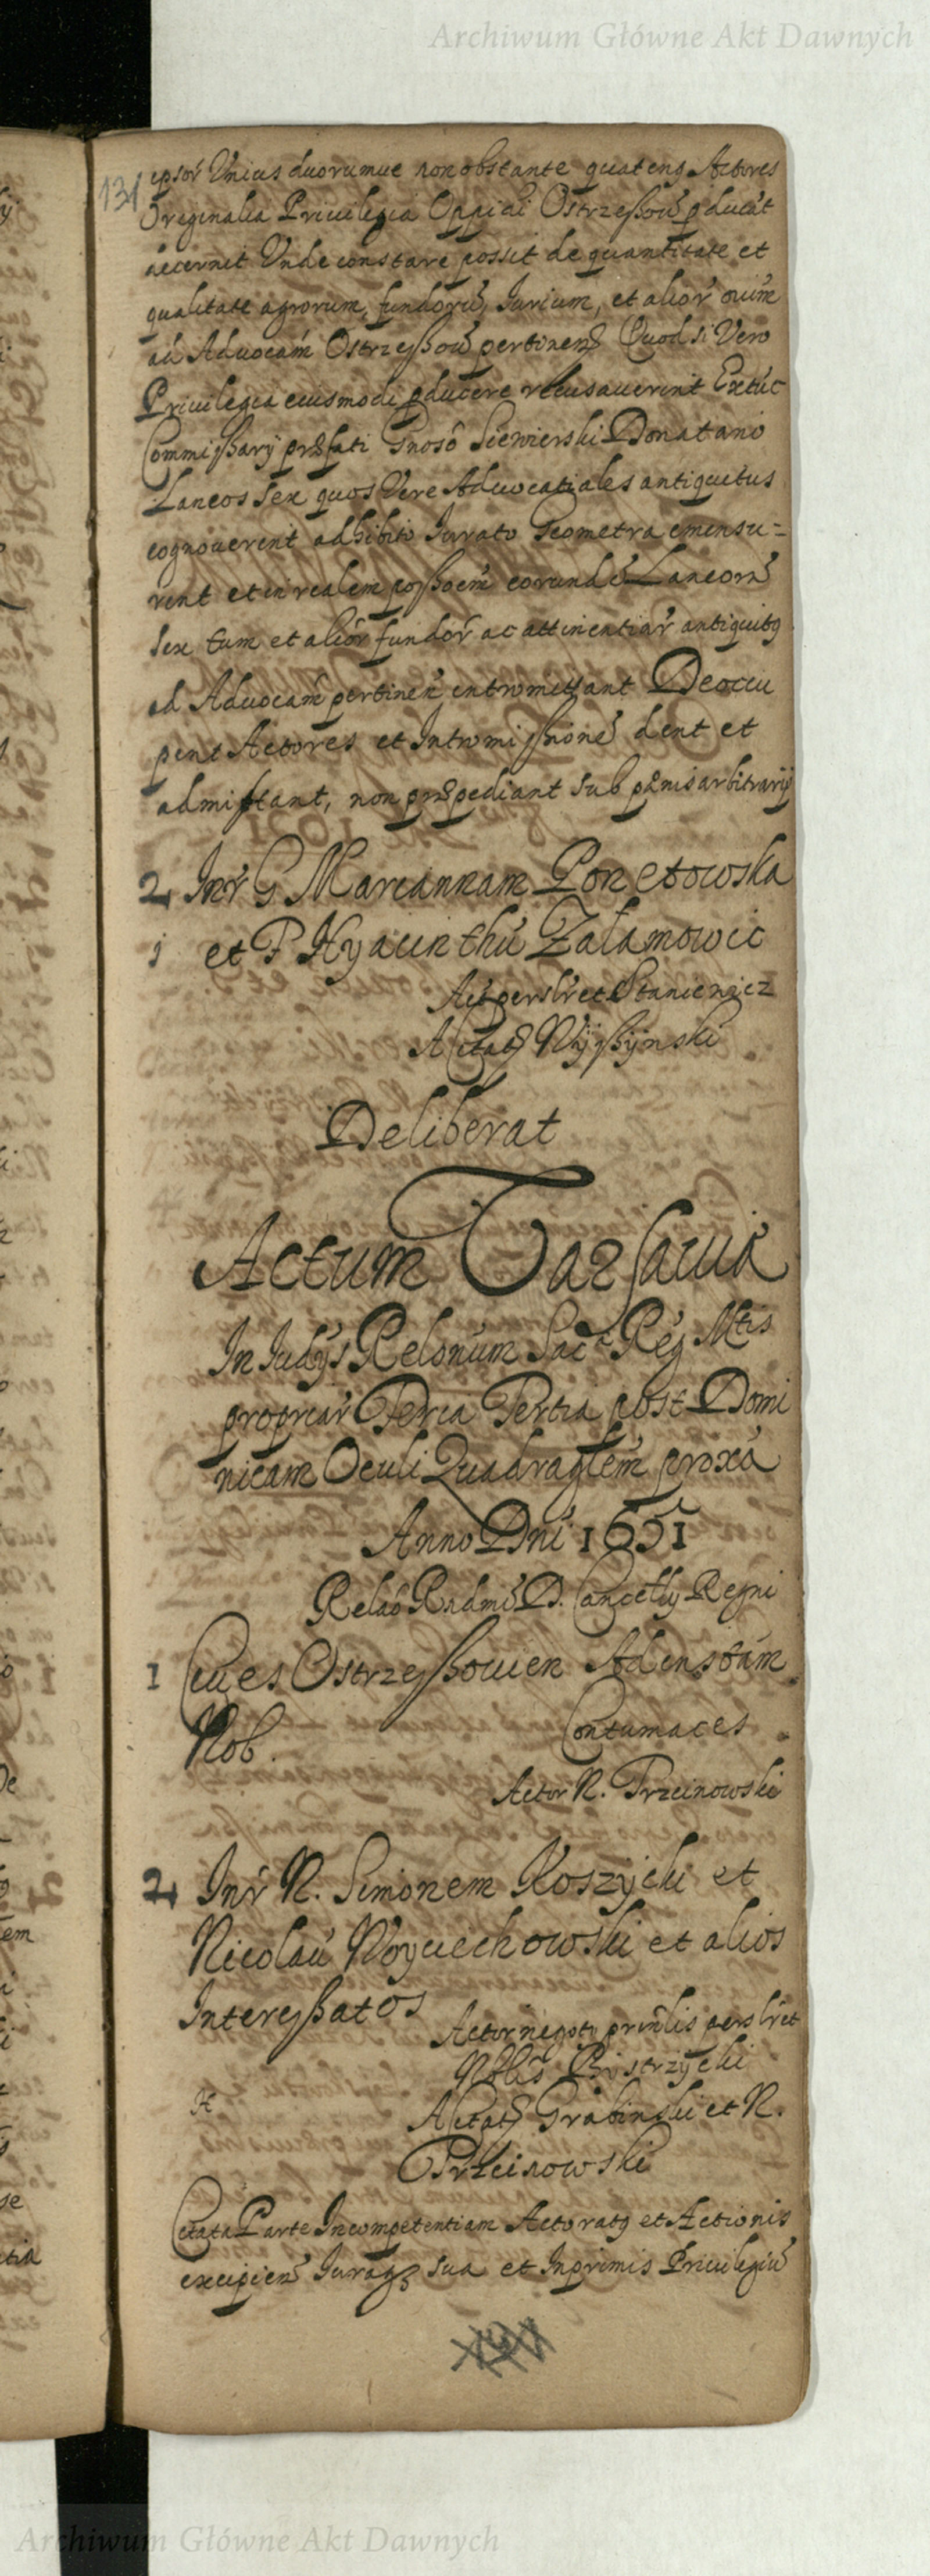 Archiwum Główne Akt Dawnych
131
ipsor Unius duorumue non obstante quatenq Actores
Oreginalia Priuilegia Oppidi Ostrzeßow pducat
decernit Unde constare possit de quantitate et
qualitate agrorum, fundorū, Iurium, et alior
ad Aduocam Ostrzeßow pertinen Quod si Vero
Priuilegia eiusmodi pducere recusauerint Extūc
Commißarij Siewierski Donatario
Laneos sex quos Vere Aduocatiales antiquitus
cognouerint adhibito Iurato Geometra emensu=
rent et in realem poßoem eorundē Laneorū
sex tum et alior fundor ac attinentiar antiquitq
ad Aduocam pertinen intromittant Deoccu
pent Actores et Intromißionē dent et
admittant, non prępediant sub pęnis arbitrarijs
2 Intr G Mariannam Ponetowska
1 et P Hyacinthū Zalamowic
Act perslret Staniewicz
A Citatꝭ Wÿßÿnski
Deliberat
Actum Varsauia
In Iudÿs Relonum Sacᵃ Reg Mtis
propriar Feria Tertia post Domi
nicam Oculi Quadraglem proxa
Anno Dni 1651
Relao Rndmi D. Cancellÿ Regni
1 Ciues Ostrzeßouien Ad instam
Nob. Contumaces
Actor N. Trzcinowski
2 Intr N. Simonem Koszÿcki et
Nicolaū Woyciechowski et alios
Intereßatos
Actor negotÿ prinlis perslret
Nobls Bistrzÿcki
A Citatꝭ Grabinski et N.
Trzcinowski
Citata Parte Incompetentiam Actoratq et Actionis
excipien Iuraqꝫ sua et Inprimis Priuilegiū
Archiwum Główne Akt Dawnych